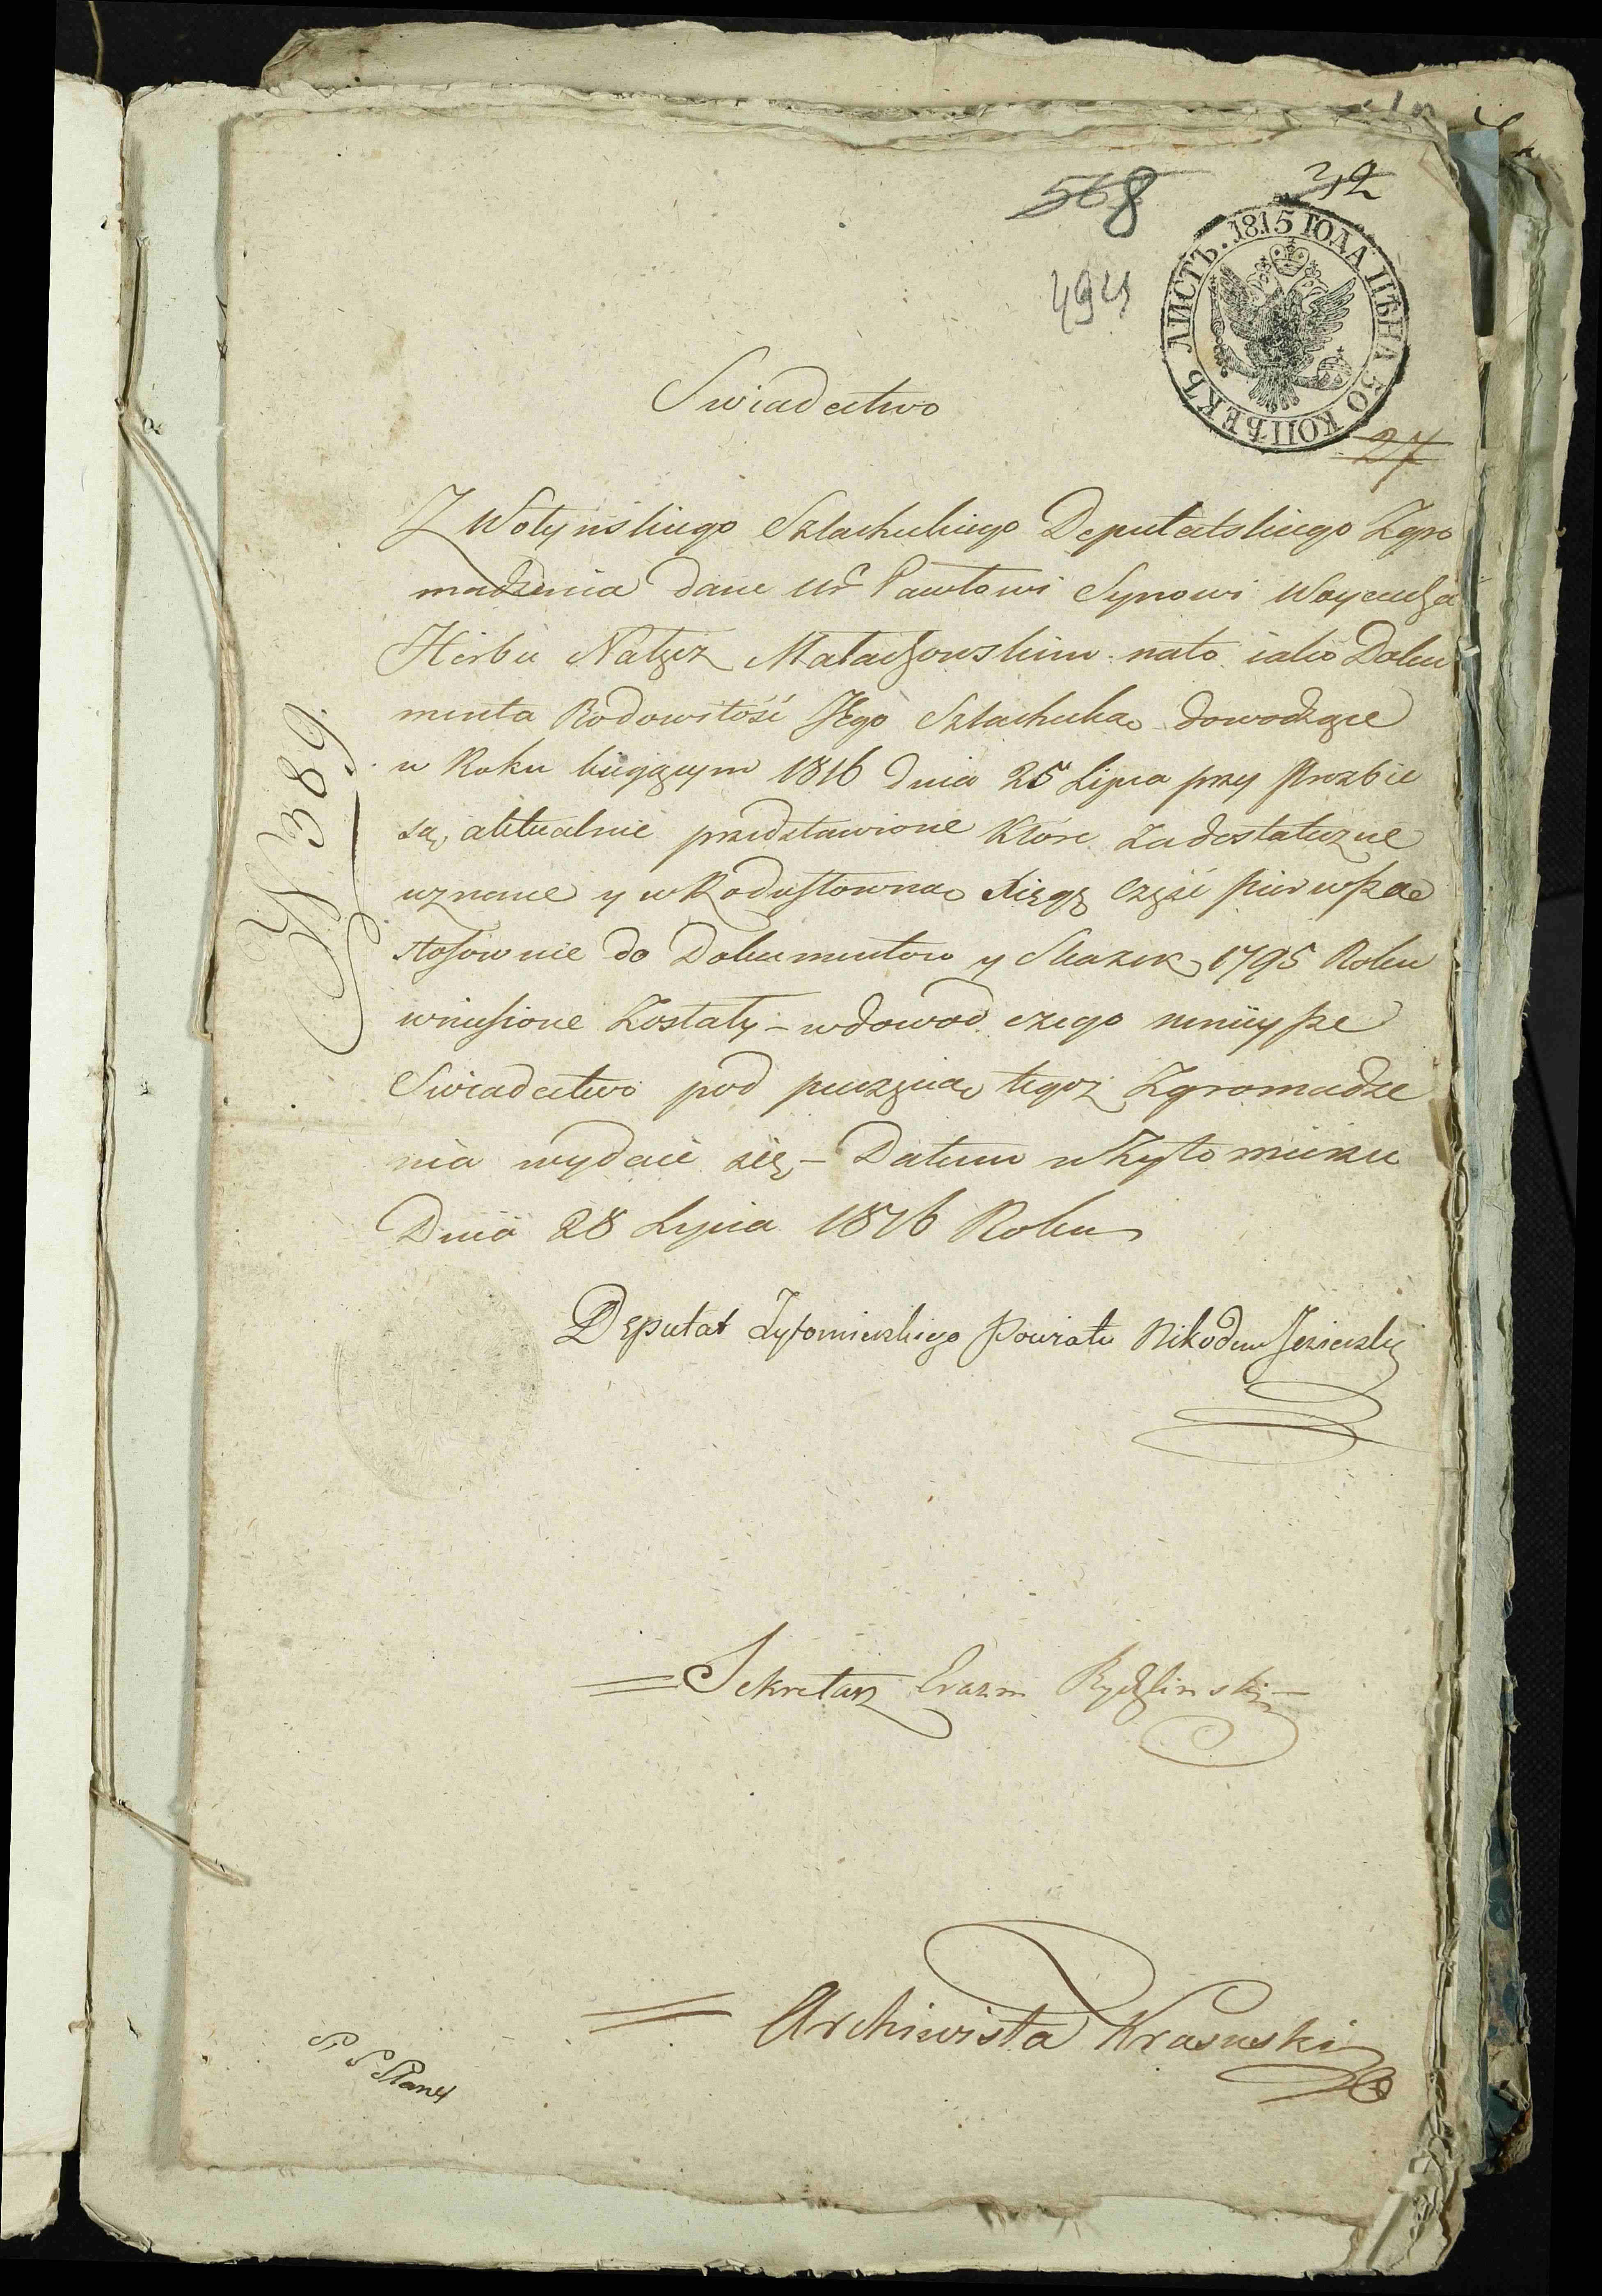 568
32
ЛИСТЪ. 1815 ГОДА ЦѢНА 50 КОПѢЕКЪ
494
27
Swiadectwo
Z Wołyńskiego Szlacheckiego Deputatskiego Zgro
madzenia dane Ur Pawłowi Synowi Woyciecha
Herbu Nałęcz Małachowskim nato iako Doku
menta Rodowitość JEgo Szlachecką dowodzące
w Roku bieżącym 1816 dnia 25 Lipca przy Prozbie
są aktualnie przedstawione które za dostateczne
uznane y w Rodosłowną Xięgę Część pierwszą
stosownie do Dokumentow y Skazek 1795 Roku
wniesione Zostały – w dowod czego ninieysze
Swiadectwo pod pieczęcią tegoż Zgromadze
nia wydaie się – Datum w Żytomirzu
Dnia 28 Lipca 1816 Roku
N 389
Deputat Żytomierskiego Powiatu Nikodem Jezierski
= Sekretarz Erazm Rydzewski
= Archiwista Krasuski